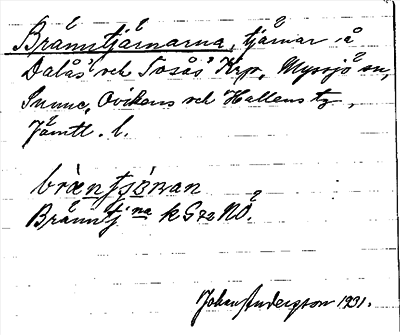 Bränntjärnarna, tjärnar å
Dalås' och Tosås' Krp, Myssjö sn,
Sunne, Ovikens och Hallens tg,
Jämtl. l.
bræntjɔ̀nan
Bränntj:na k G72 NO.
Johan Anderzson 1931.